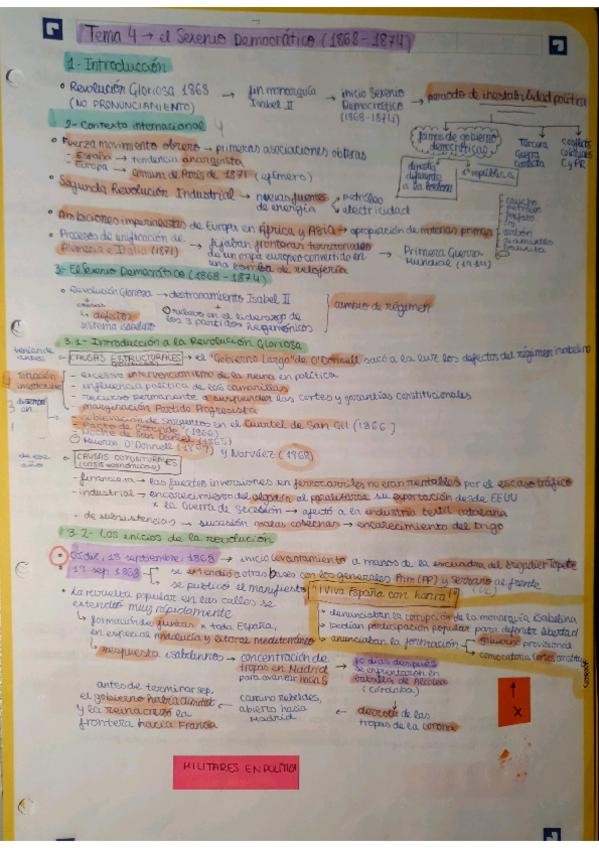 Tema 4 → el Sexenio Democrático (1868-1874)
1- Introducción
• Revolución Gloriosa 1868 → fin monarquía → inicio Sexenio → periodo de inestabilidad política
(NO PRONUNCIAMIENTO) Isabel II Democrático
(1868-1874)
2- Contexto internacional
formas de gobierno democráticas
Tercera Guerra Carlista
Conflicto coloniales C y PR
dinastía diferente a la borbón
1ª república
• Fuerza movimiento obrero → primeras asociaciones obreras
- España → tendencia anarquista
- Europa → comuna de París de 1871 (efímero)
• Segunda Revolución Industrial → nuevas fuentes de energía → petróleo
→ electricidad
• Ambiciones imperialistas de Europa en África y Asia → apropiación de materias primas
caucho
petróleo
carbón
• Procesos de unificación de → fijaban fronteras territoriales → Primera Guerra
e Italia (1871) de una europa convertida en Mundial (1914)
una bomba de relojería
3- El Sexenio Democrático (1868-1874)
• Revolución Gloriosa → destronamiento Isabel II
causas
↳ defectos sistema isabelino
relevo en el liderazgo de
los 3 partidos hegemónicos
cambio de régimen
3.1- Introducción a la Revolución Gloriosa
CAUSAS ESTRUCTURALES → el "Gobierno Largo" de O'Donnell sacó a la luz los defectos del régimen isabelino
- excesivo intervencionismo de la reina en política
- influencia política de las camarillas
- recurso permanente a suspender las cortes y garantías constitucionales
- marginación Partido Progresista
- sublevación de sargentos en el Cuartel de San Gil (1866)
- Pacto de Ostende (1866)
- Noche de San Daniel (1865)
Muerte O'Donnell (1867) y Narváez (1868)
CAUSAS COYUNTURALES
(crisis económicas)
- financiera → las fuertes inversiones en ferrocarriles no eran rentables por el escaso tráfico
- industrial → encarecimiento del algodón al paralizarse su exportación desde EEUU
x la Guerra de Secesión → afectó a la industria textil catalana
- de subsistencias → sucesión malas cosechas → encarecimiento del trigo
3.2- Los inicios de la revolución
• Cádiz, 18 septiembre, 1868 → inicio levantamiento a manos de la escuadra del brigadier Topete
19 sep 1868 se extendió a otras bases con los generales Prim (PP) y Serrano al frente
se publicó el manifiesto "¡Viva España con honra!"
• denunciaban la corrupción de la monarquía isabelina
• pedían participación popular para defender libertad
• anunciaban la formación gobierno provisional
convocatoria Cortes
• La revuelta popular en las calles se
extendió muy rápidamente
↳ formación de juntas x toda España,
en especial Andalucía y litoral mediterráneo
↳ respuesta isabelinos → concentración de tropas en Madrid para avanzar hacia S → 10 días después se enfrentaron en batalla de Alcolea (Córdoba)
↓
derrota de las tropas de la corona
← camino rebeldes, abierto hacia Madrid
← antes de terminar sep. el gobierno había dimitido y la reina cruzó la frontera hacia Francia
X
MILITARES EN POLÍTICA